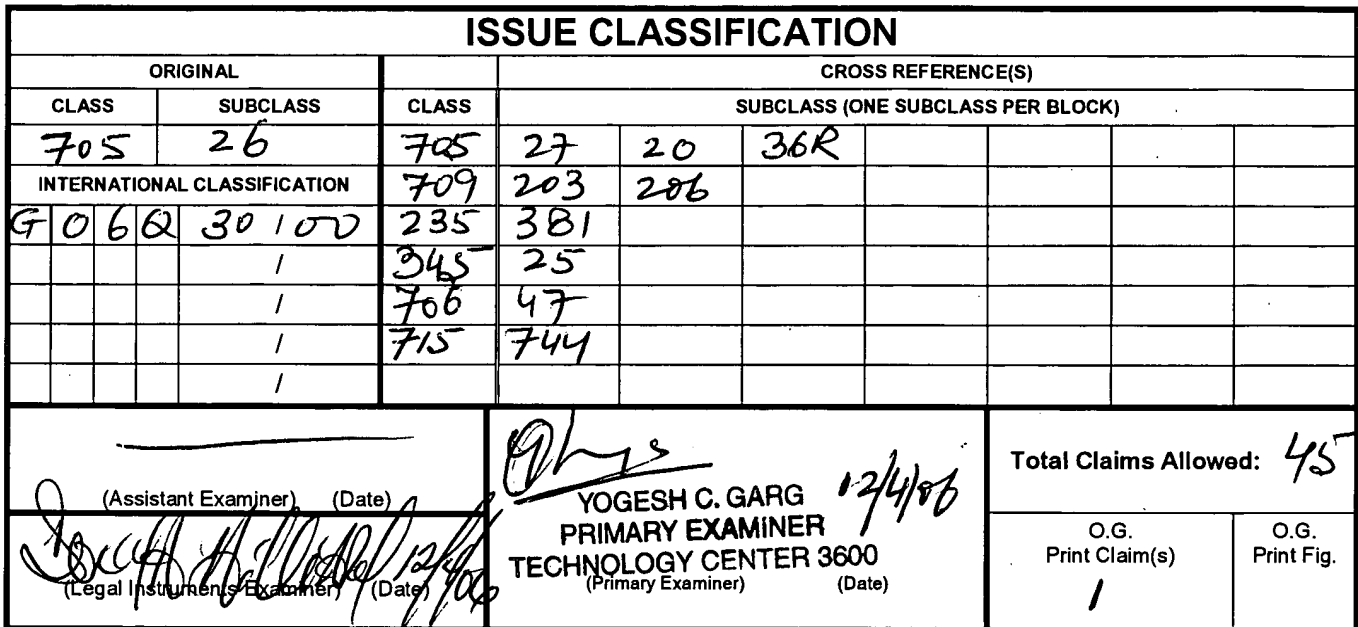 ISSUE CLASSIFICATION
ORIGINAL CROSS REFERENCE(S)
CLASS SUBCLASS CLASS SUBCLASS (ONE SUBCLASS PER BLOCK)
705 26 705 27 20 36R
INTERNATIONAL CLASSIFICATION 709 203 206
G 0 6 Q 30 / 00 235 381
/ 345 25
/ 706 47
/ 715 744
/
(Assistant Examiner) (Date)
YOGESH C. GARG 12/4/06
PRIMARY EXAMINER
TECHNOLOGY CENTER 3600
(Primary Examiner) (Date)
Total Claims Allowed: 45
(Legal Instruments Examiner) (Date)
O.G.
Print Claim(s)
1
O.G.
Print Fig.